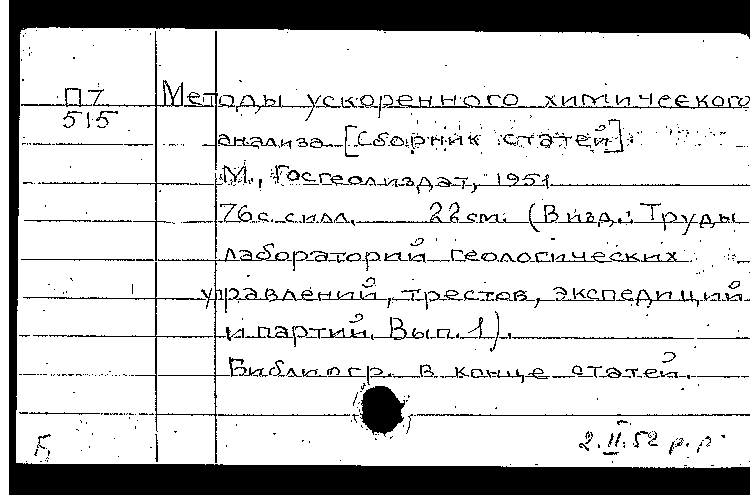 П7
515
Методы ускоренного химического
анализа [Сборник статей]
М., Госгеолиздат, 1951
76 с. с илл. 22 см. (В изд.: Труды
лабораторий геологических
управлений, трестов, экспедиций
и партий. Вып. 1).
Библиогр. в конце статей.
Б
2.II.52 р.р.